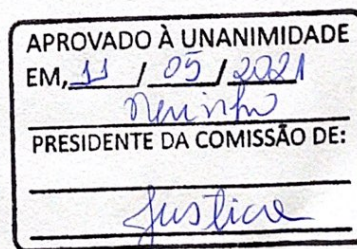 APROVADO À UNANIMIDADE
EM, 11 / 05 / 2021
PRESIDENTE DA COMISSÃO DE:
Justiça